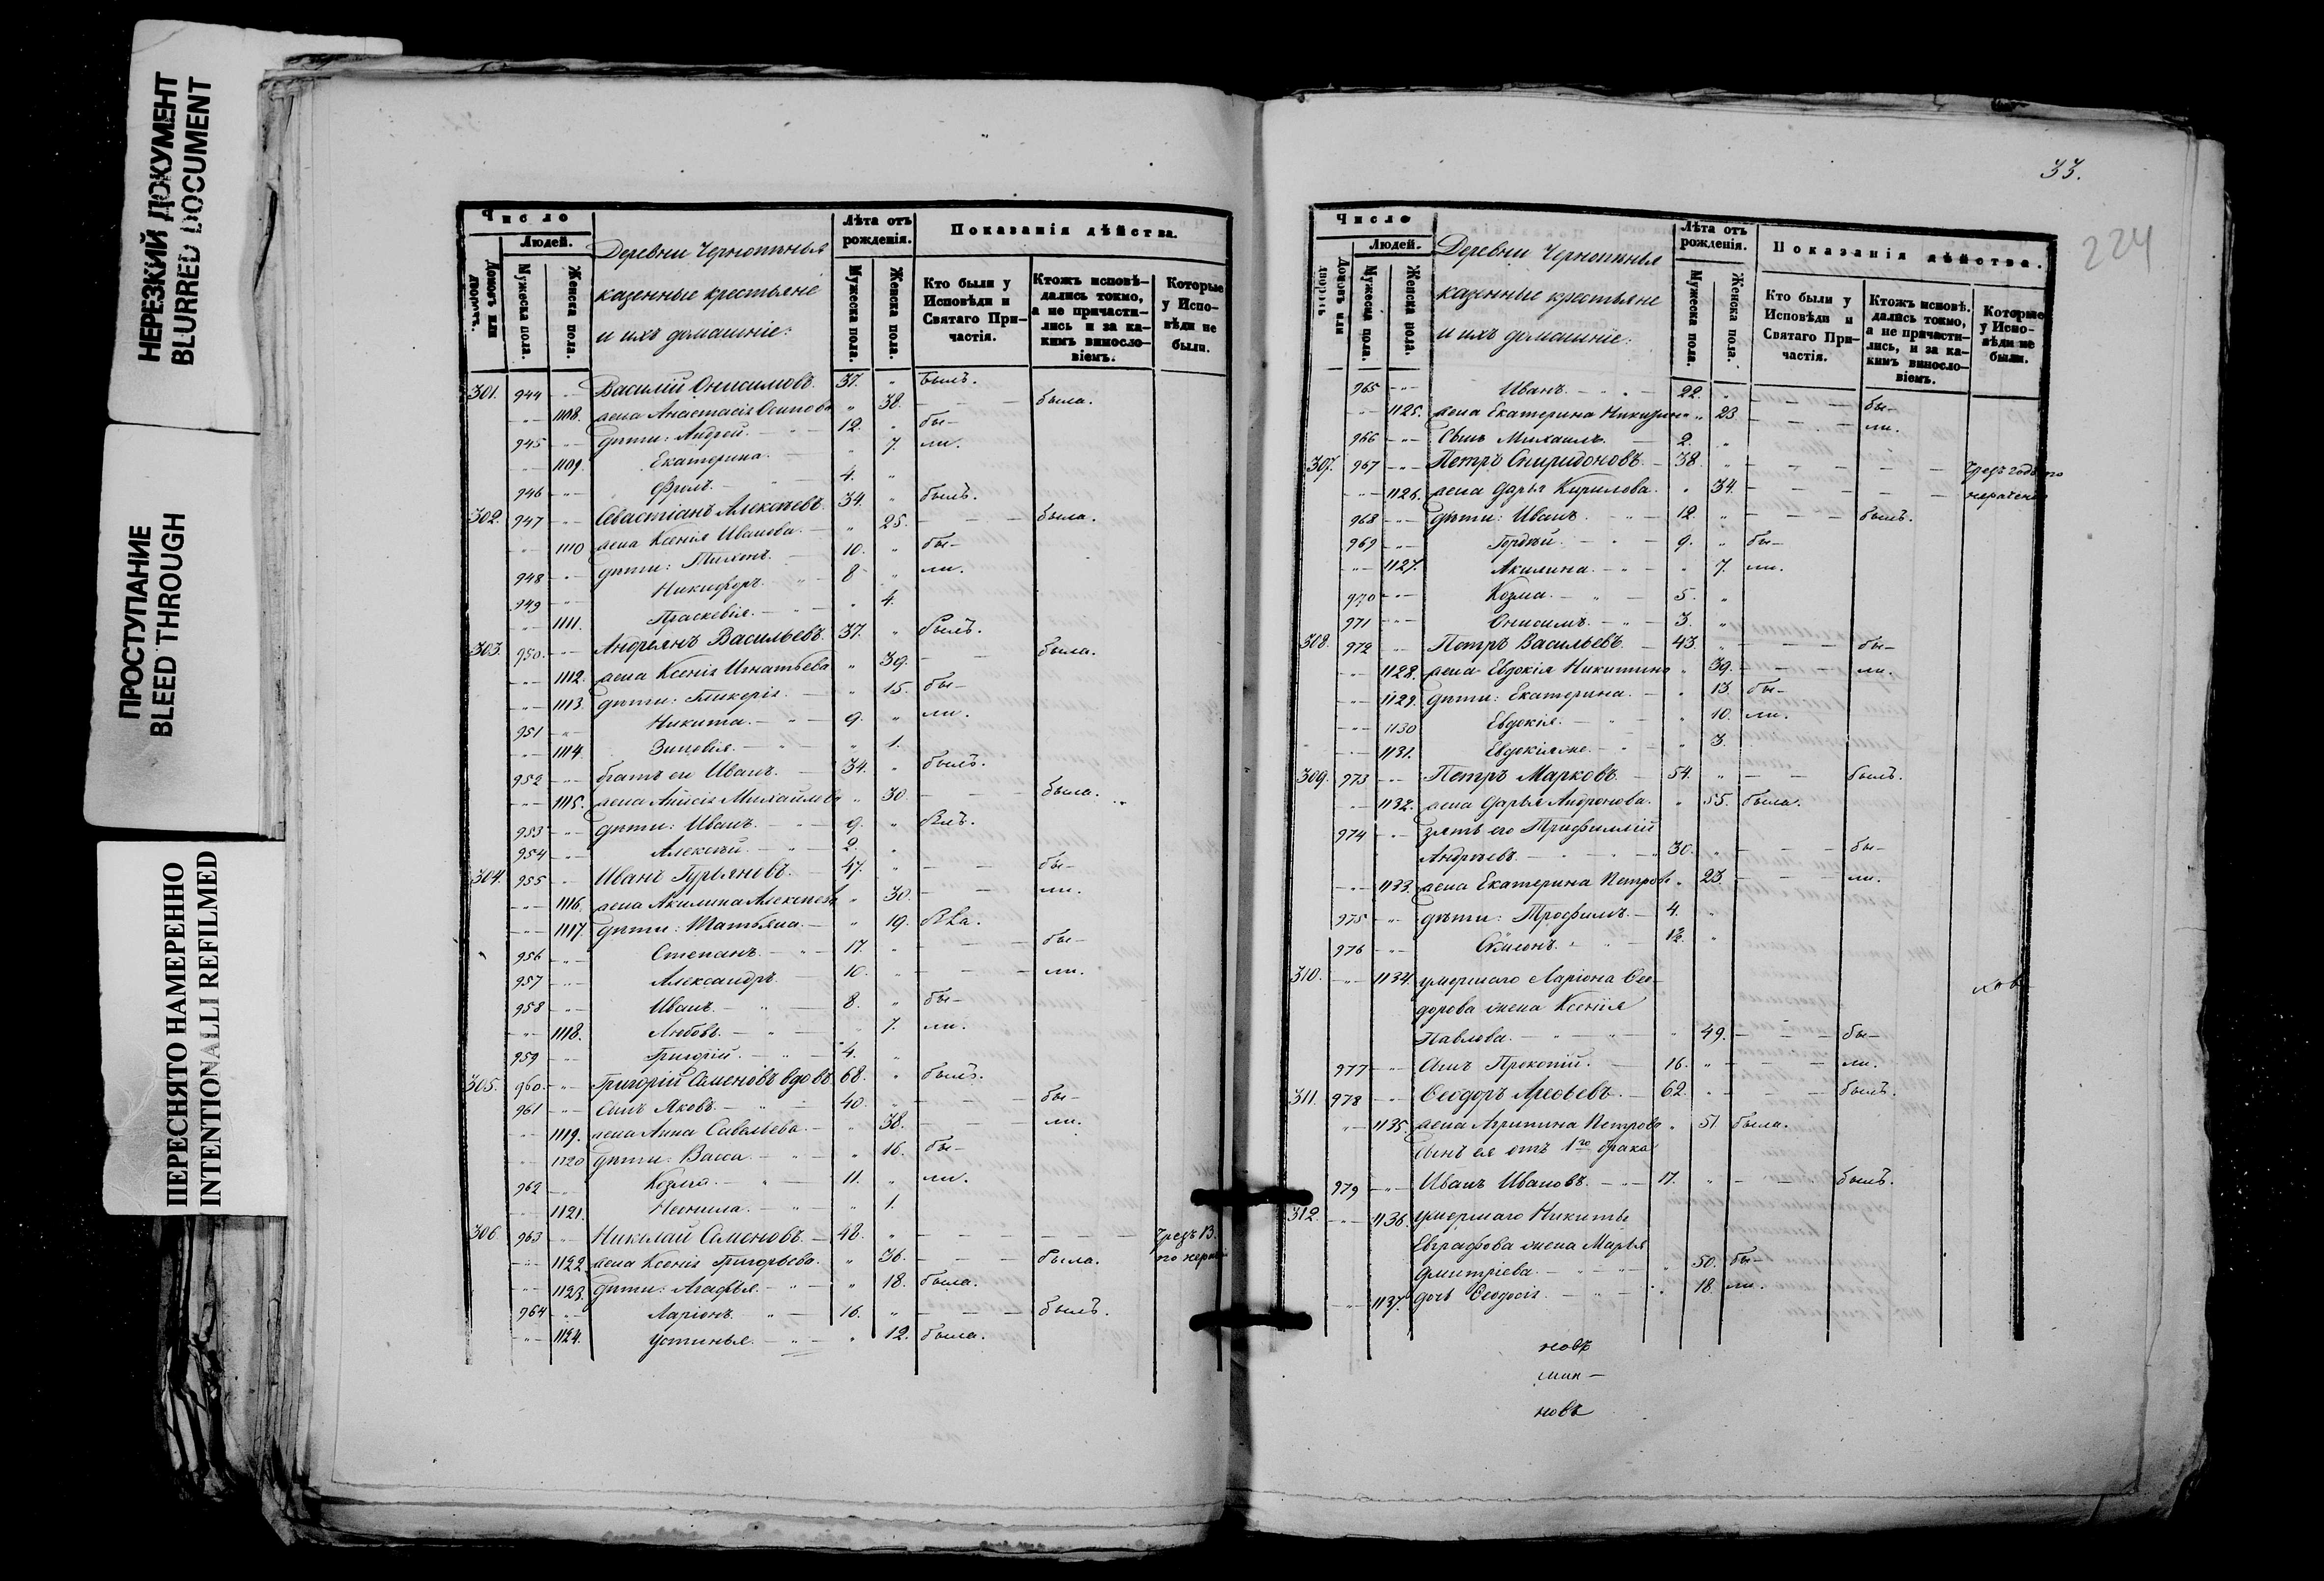 НЕРЕЗКИЙ ДОКУМЕНТ
BLURRED DOCUMENT
ПРОСТУПАНИЕ
BLEED THROUGH
ПЕРЕСНЯТО НАМЕРЕННО
INTENTIONALLI REFILMED
Число
Людей.
Домовъ или дворовъ.
Мужеска пола.
Женска пола.
Деревни
казенные крестьяне
и ихъ домашніе:
Лѣта отъ рожденія.
Мужеска пола.
Женска пола.
Показанія дѣйства.
Кто были у Исповѣди и Святаго Причастія.
Ктожъ исповѣдались токмо, а не причастились и за какимъ винословіемъ.
Которые у Исповѣди не были.
301. 944 Василій Онисимовъ. 37. былъ.
1108. жена Анастасія Осипова 38. была.
945 дѣти: Андрей. 12. бы-
1109. Екатерина. 7. ли.
946 Фролъ. 4.
302. 947 Севастіанъ Алексѣевъ. 34. былъ.
1110 жена Ксенія Иванова. 25. была.
948 дѣти: Тихонъ. 10. бы-
949 Никифоръ. 8 ли.
1111. Праскевія. 4.
303. 950. Андреянъ Васильевъ. 37. былъ.
1112. жена Ксенія Игнатьева 39. была.
1113. дѣти: Гликерія. 15. бы-
951 Никита. 9. ли.
1114. Зиновія. 1.
952 братъ его Иванъ. 34. былъ.
1115. жена Анисія Михайлова 30. была.
953 дѣти: Иванъ. 9.
954 Алексѣй. 2.
304. 955 Иванъ Гурьяновъ. 47. бы-
1116. жена Акилина Алексѣева 30. ли.
1117. дѣти: Татьяна. 19.
956 Степанъ. 17. бы-
957 Александръ. 10. ли.
958 Иванъ. 8. бы-
1118. Любовь. 7. ли.
959 Григорій. 4.
305. 960. Григорій Семеновъ вдовъ 68. былъ.
961 сынъ Яковъ. 40. бы-
1119. жена Анна Савельева. 38. ли.
1120 дѣти: Васса. 16. бы-
962 Козма. 11. ли.
1121. Неонила. 1.
306 963 Николай Семеновъ. 48. Чрезъ
1122 жена Ксенія Григорьева. 36. была.
1123. дѣти: Агафья. 18. была.
964 Ларіонъ. 16. былъ.
1124. Устинья. 12. была.
33.
224
Число
Людей.
Домовъ или дворовъ
Мужеска пола.
Женска пола.
Деревни
казенные крестьяне
и ихъ домашніе:
Лѣта отъ рожденія.
Мужеска пола.
Женска пола.
Показанія дѣйства.
Кто были у Исповѣди и Святаго Причастія.
Ктожъ исповѣдались токмо, а не причастились, и за какимъ винословіемъ.
Которые у Исповѣди не были.
965 Иванъ. 22. бы-
1125. жена Екатерина 23 ли.
966 сынъ Михаилъ. 2.
307. 967 Петръ Спиридоновъ. 38.
1126. жена Дарья Кирилова. 34.
968 дѣти: Иванъ. 12. былъ.
969 Гордѣй. 9. бы-
1127. Акилина. 7. ли.
970 Козма. 5.
971 Онисимъ. 3.
308. 972 Петръ Васильевъ. 43. бы-
1128. жена Евдокія Никитина 39. ли.
1129. дѣти: Екатерина. 13. бы-
1130 Евдокія. 10. ли.
1131. Евдокія же. 3.
309. 973 Петръ Марковъ. 54. былъ.
1132. жена Дарья Андронова. 55. была.
974 зять его Трифиллій
Андрѣевъ. 30. бы-
1133. жена Екатерина Петрова 23. ли.
975 дѣти: Трофимъ. 4.
976
310. 1134. умершаго Ларіона Ѳео-
дорова жена Ксенія
Павлова. 49. бы-
977 сынъ Прокопій. 16. ли.
311. 978 Ѳеодоръ 62. былъ.
1135. жена Агрипина Петрова 51 была.
Сынъ ея отъ 1го брака
979 Иванъ Ивановъ. 17. былъ.
312. 1136. умершаго Никиты
Евграфова жена Марья
Дмитріева. 50. бы-
1137. дочь Ѳеодосія. 18. ли.
новъ
мин-
новъ